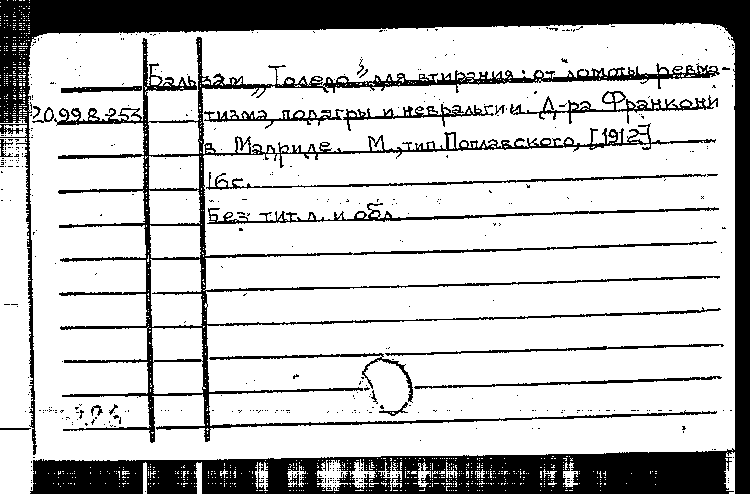 Бальзам „Толедо” для втирания: от ломоты, ревма-
20.99.8.253 тизма, подагры и невралгии. Д-ра Франкони
в Мадриде. М., тип. Поплавского, [1912].
16 с.
Без тит. л. и обл.